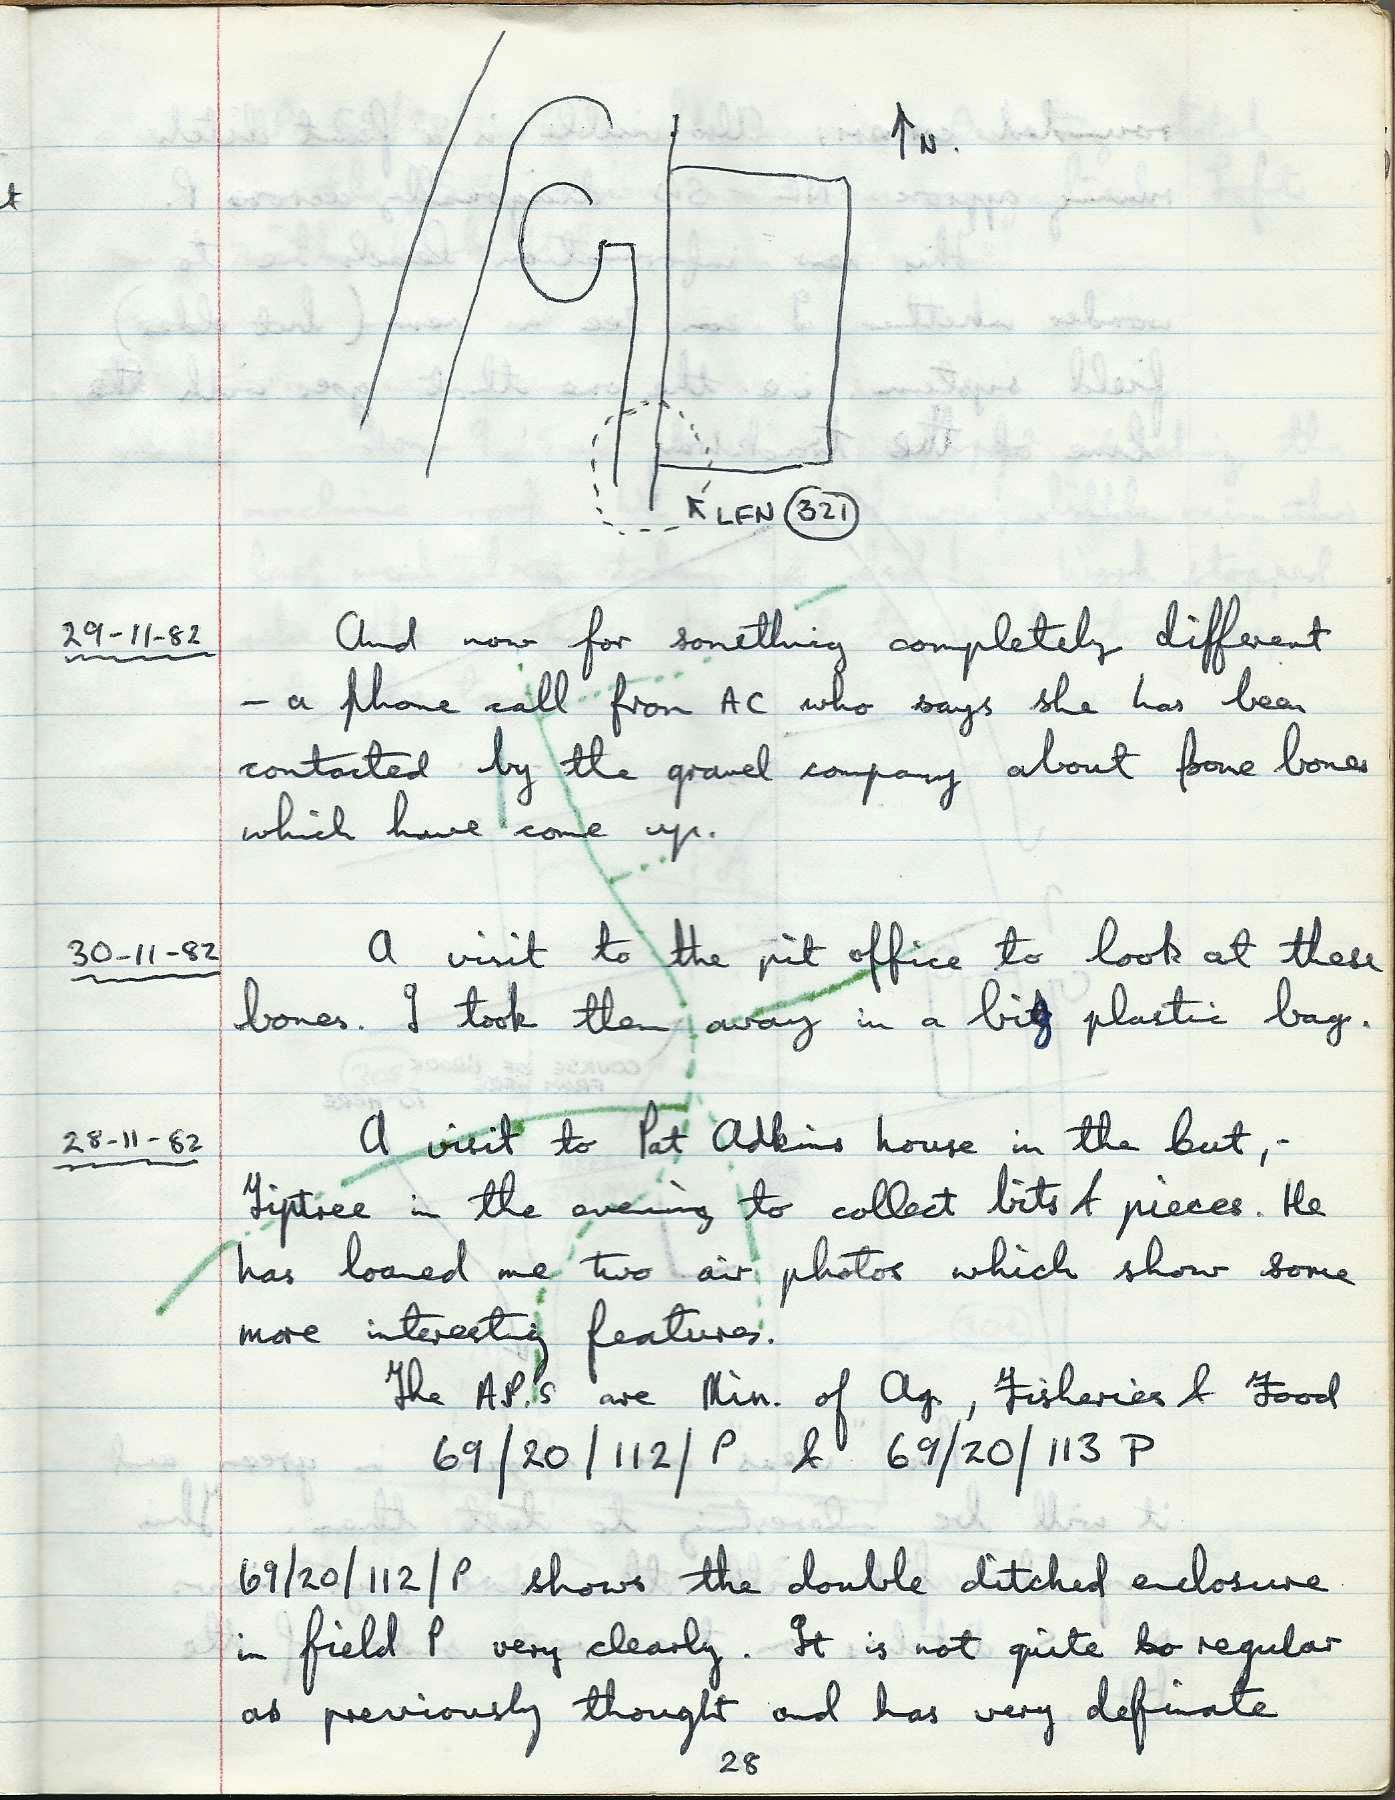 N.
LFN 321
29-11-82 And now for something completely different
- a phone call from AC who says she has been
contacted by the gravel company about some bones
which have come up.
30-11-82 A visit to the pit office to look at these
bones. I took them away in a big plastic bag.
28-11-82 A visit to Pat Adkins house in the but, -
Tiptree in the evening to collect bits & pieces. He
has loaned me two air photos which show some
more interesting features.
The A.P.'s are Min. of Ag., Fisheries & Food
69/20/112/P & 69/20/113 P
69/20/112/P shows the double ditched enclosure
in field P very clearly. It is not quite so regular
as previously thought and has very definate
28